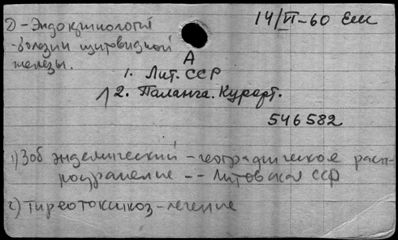 Д - Эндокринологія 14/VI-60 Еш
- болезни щитовидной
железы.
А
1. Лит. ССР
2. Паланга. Курорт.
546582
1) Зоб эндемический - географическое расп-
ространение -- Литовская ССР
2) Тиреотоксикоз - лечение